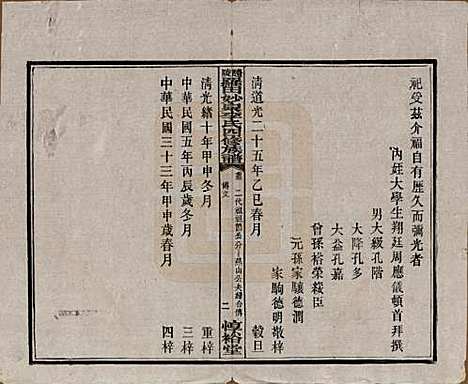 祀受茲介福自有歷久而彌光者
內姪大學生翔廷周應儀頓首拜撰
男大級孔階
大降孔多
大益孔嘉
曾孫裕榮綏臣
元孫家驤德潤
家駒德明敬梓
清道光二十五年乙巳春月 穀旦
妙泉李氏四修族譜
傳文
二
惇裕堂
清光緒十年甲申冬月 重梓
中華民國五年丙辰歲冬月 三梓
中華民國三十三年甲申歲春月 四梓